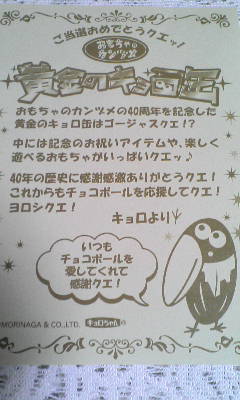 ご当選おめでとうクエッ!
おもちゃの
カンヅメ
黄金のキョロ缶
おもちゃのカンヅメの40周年を記念した
黄金のキョロ缶はゴージャスクエ!?
中には記念のお祝いアイテムや、楽しく
遊べるおもちゃがいっぱいクエッ♪
40年の歴史に感謝感激ありがとうクエ!
これからもチョコボールを応援してクエ!
ヨロシクエ!
キョロより
いつも
チョコボールを
愛してくれて
感謝クエ!
©MORINAGA & CO.,LTD.
キョロちゃん®